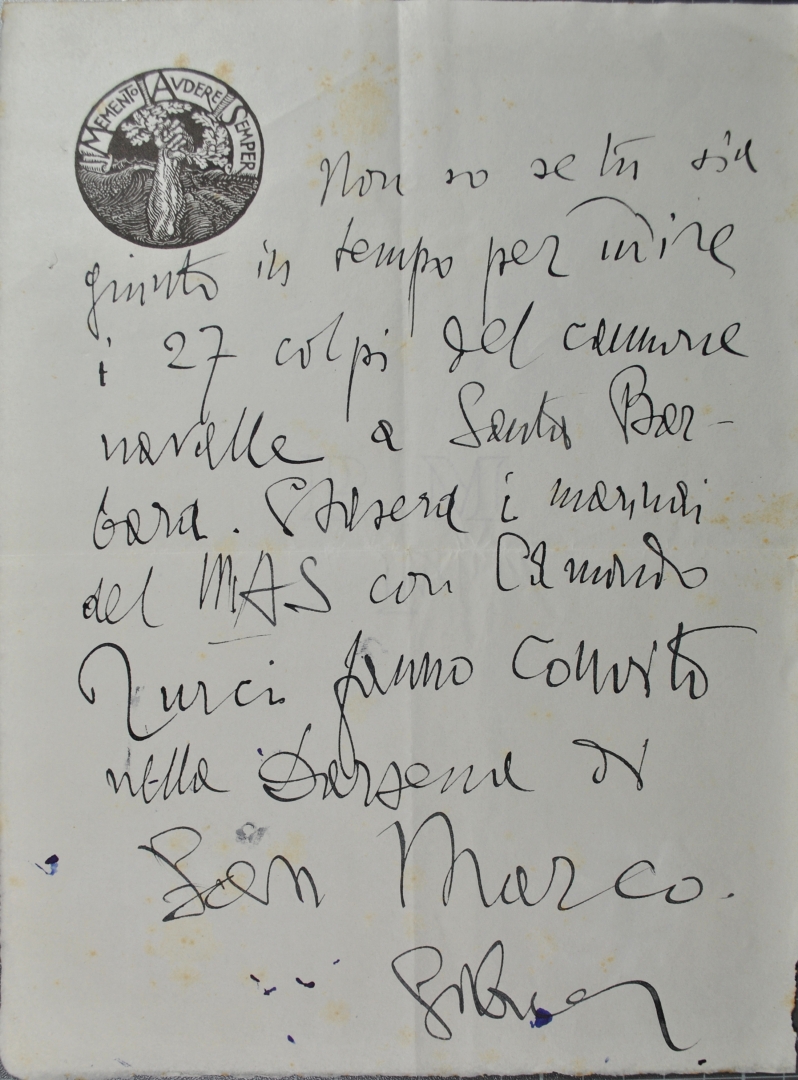 MEMENTO AVDERE SEMPER
Non so se tu sia
giunto in tempo per udire
i 27 colpi del cannone
navale a Santa Bar-
bara. Stasera i marinai
del MAS con Edmondo
Turci fanno convito
nella Darsena di
San Marco.